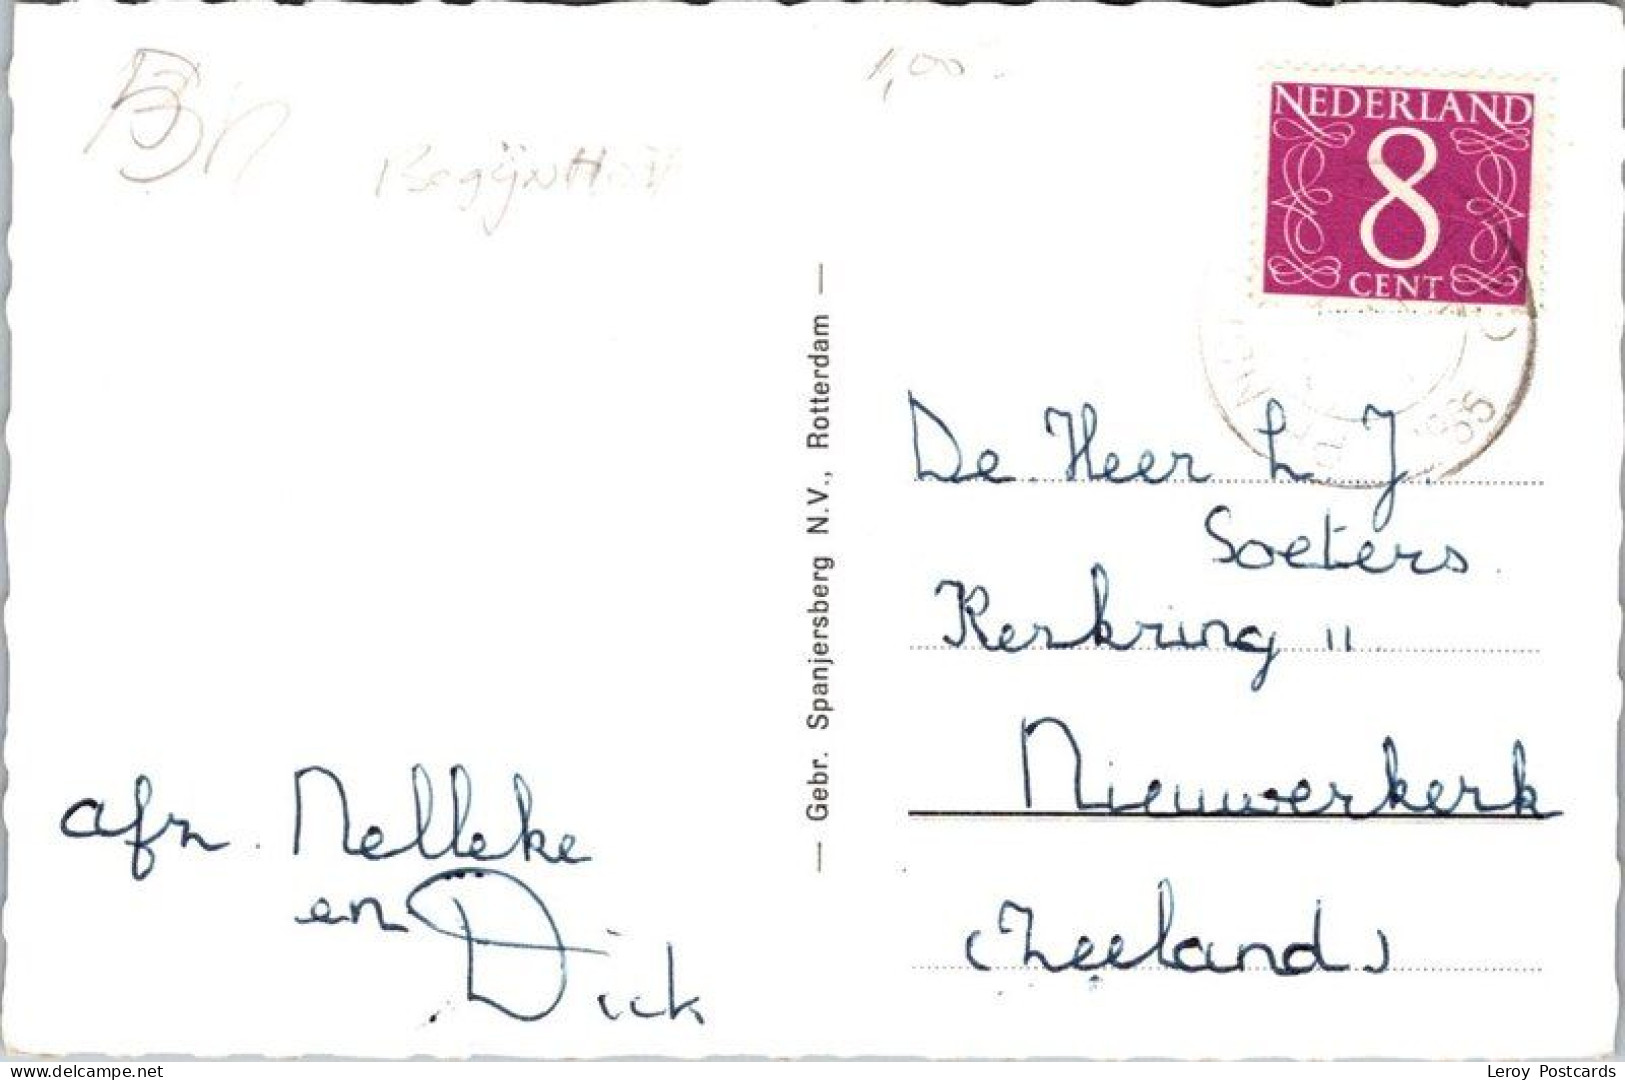 1,00.
BegijnHof
NEDERLAND
8
CENT
65
— Gebr. Spanjersberg N.V., Rotterdam —
De Heer L J.
Soeters.
Kerkring 11.
Nieuwerkerk
(Zeeland)
afz. Nelleke
en Dick
www.delcampe.net
Leroy Postcards